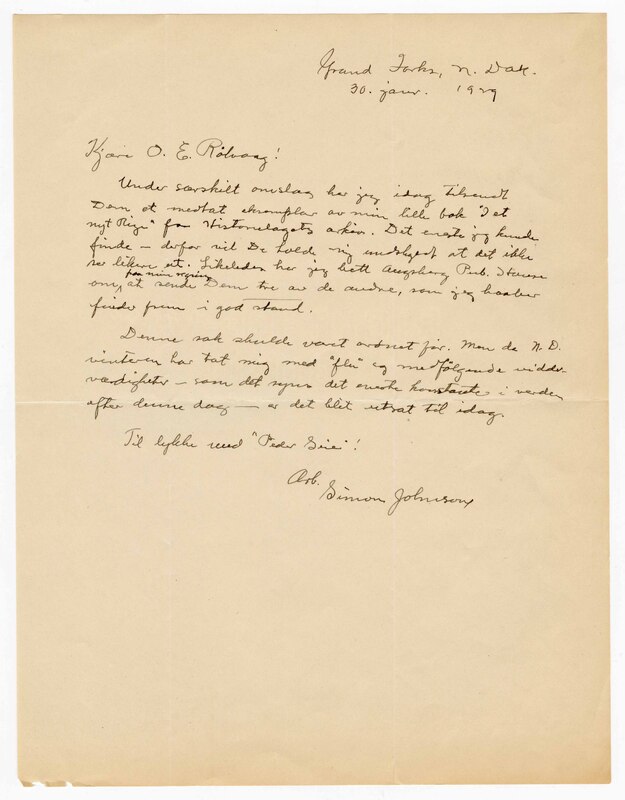 Grand Forks, N. Dak.
30. janr. 1929
Kjære O. E. Rølvaag!
Under særskilt omslag har jeg idag tilsendt
Dem et medtat eksemplar av min lille bok "I et
nyt Rige" for Historielagets arkiv. Det eneste jeg kunde
finde – derfor vil De holde mig undskyldt at det ikke
ser likere ut. Likeledes har jeg bett Augsburg Pub. House
for min regning
om, at sende Dem tre av de andre, som jeg haaber
finder frem i god stand.
Denne sak skulde vært ordnet før. Men da N. D.
vinteren har tat mig med "flu" og medfølgende vidder-
værdigheter – som det synes det eneste konstante i verden
efter denne dag – er det blit utsat til idag.
Til lykke med "Peder Seier"!
Arb.
Simon Johnson